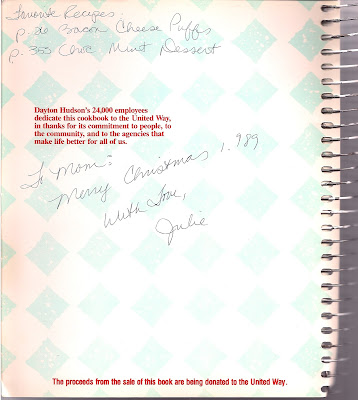 Favorite Recipes:
p. 26 Bacon Cheese Puffs
p. 353 Choc Mint Dessert
Dayton Hudson's 24,000 employees
dedicate this cookbook to the United Way,
in thanks for its commitment to people, to
the community, and to the agencies that
make life better for all of us.
To Mom:
Merry Christmas 1989
With Love,
Julie
The proceeds from the sale of this book are being donated to the United Way.